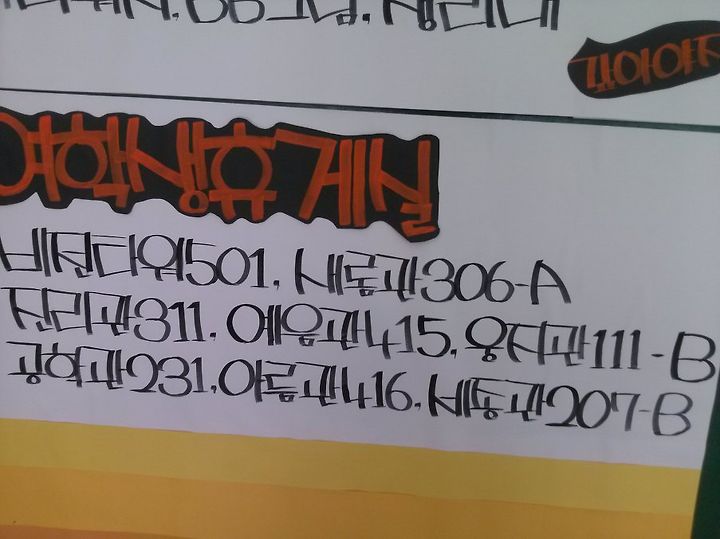 여학생휴게실
비전타워501, 새롬관306-A
진리관311, 예음관415, 웅지관111-B
공학관231, 아름관416, 세종관207-B